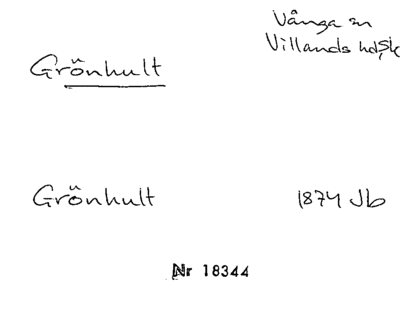 Vånga sn
Villands hd, Sk
Grönhult
Grönhult 1874 Jb
Nr 18344